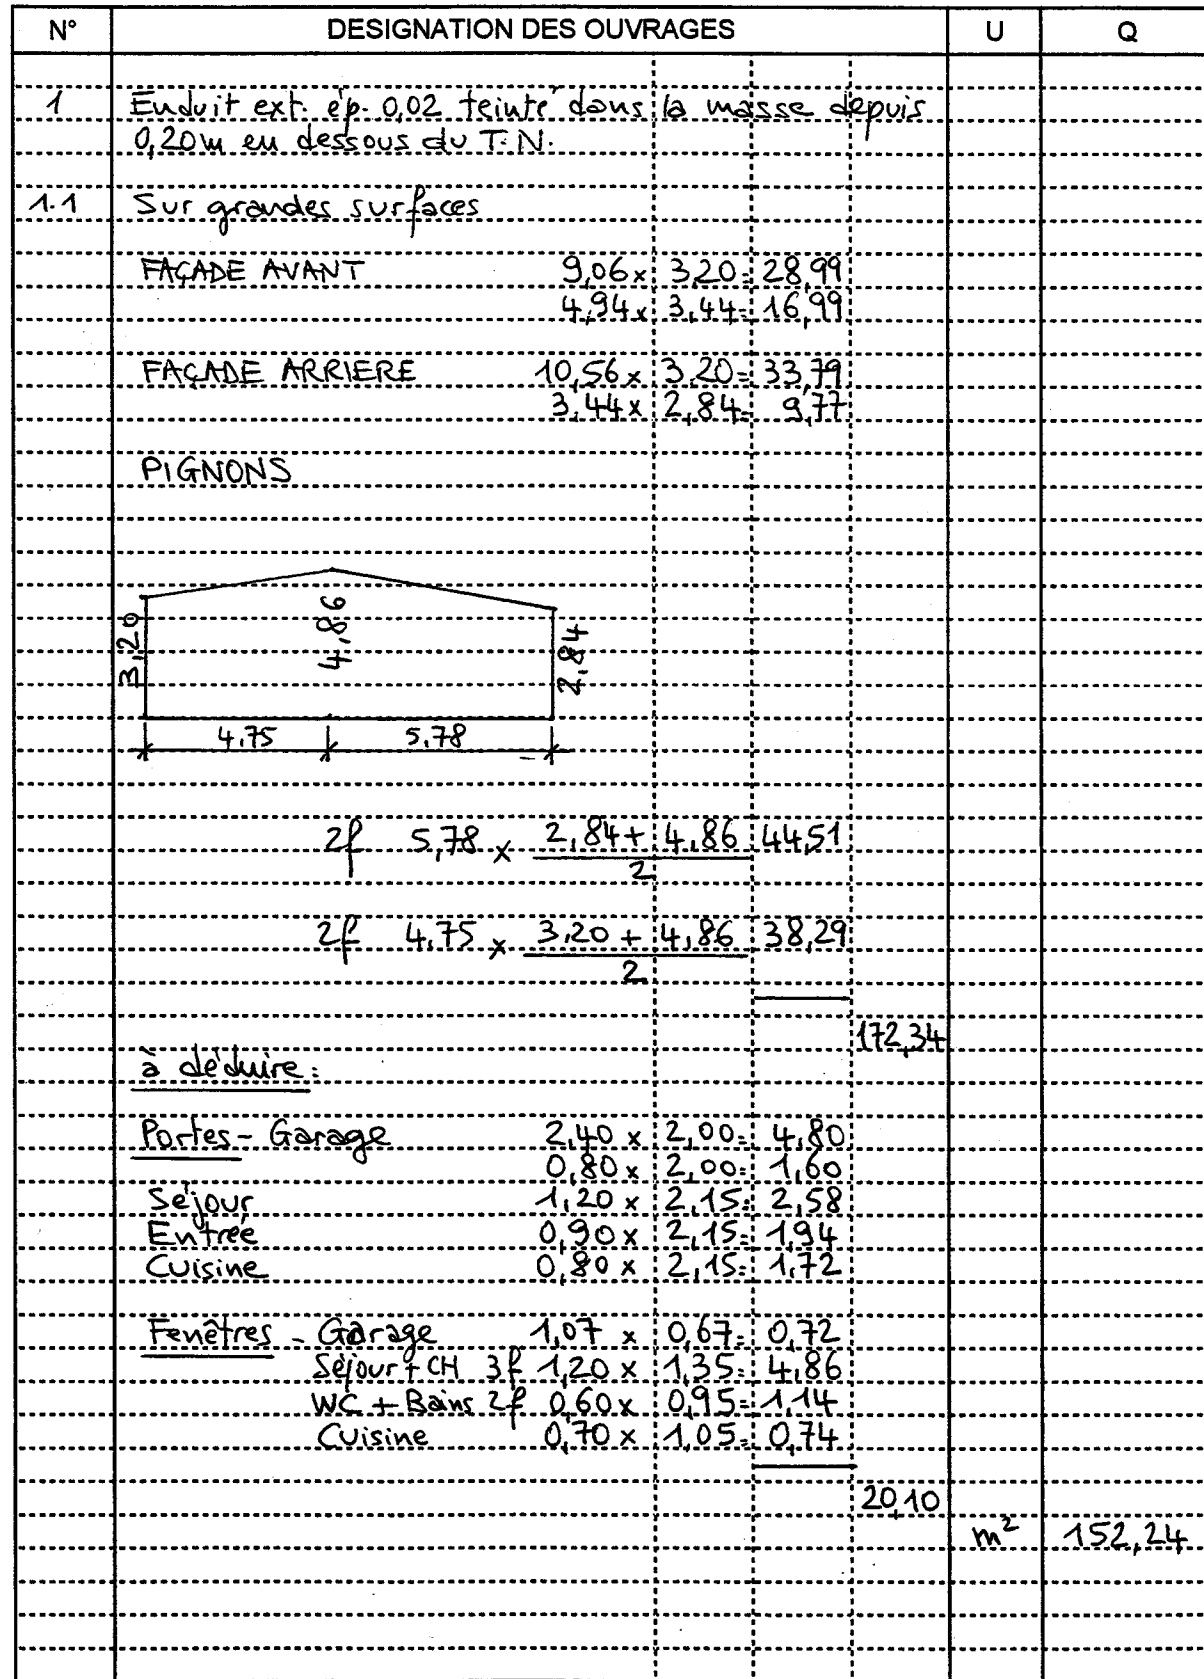 N° DESIGNATION DES OUVRAGES U Q
1 Enduit ext. ép. 0,02 teinté dans la masse depuis
0,20m en dessous du T.N.
1.1 Sur grandes surfaces
FAÇADE AVANT 9,06 x 3,20 = 28,99
4,94 x 3,44 = 16,99
FAÇADE ARRIERE 10,56 x 3,20 = 33,79
3,44 x 2,84 = 9,77
PIGNONS
3,20 4,86 2,84
4,75 5,78
2f 5,78 x 2,84 + 4,86 44,51
2
2f 4,75 x 3,20 + 4,86 38,29
2
172,34
à déduire :
Portes - Garage 2,40 x 2,00 = 4,80
0,80 x 2,00 = 1,60
Séjour 1,20 x 2,15 = 2,58
Entrée 0,90 x 2,15 = 1,94
Cuisine 0,80 x 2,15 = 1,72
Fenêtres - Garage 1,07 x 0,67 = 0,72
Séjour + CH 3f 1,20 x 1,35 = 4,86
WC + Bains 2f 0,60 x 0,95 = 1,14
Cuisine 0,70 x 1,05 = 0,74
20,10
m² 152,24